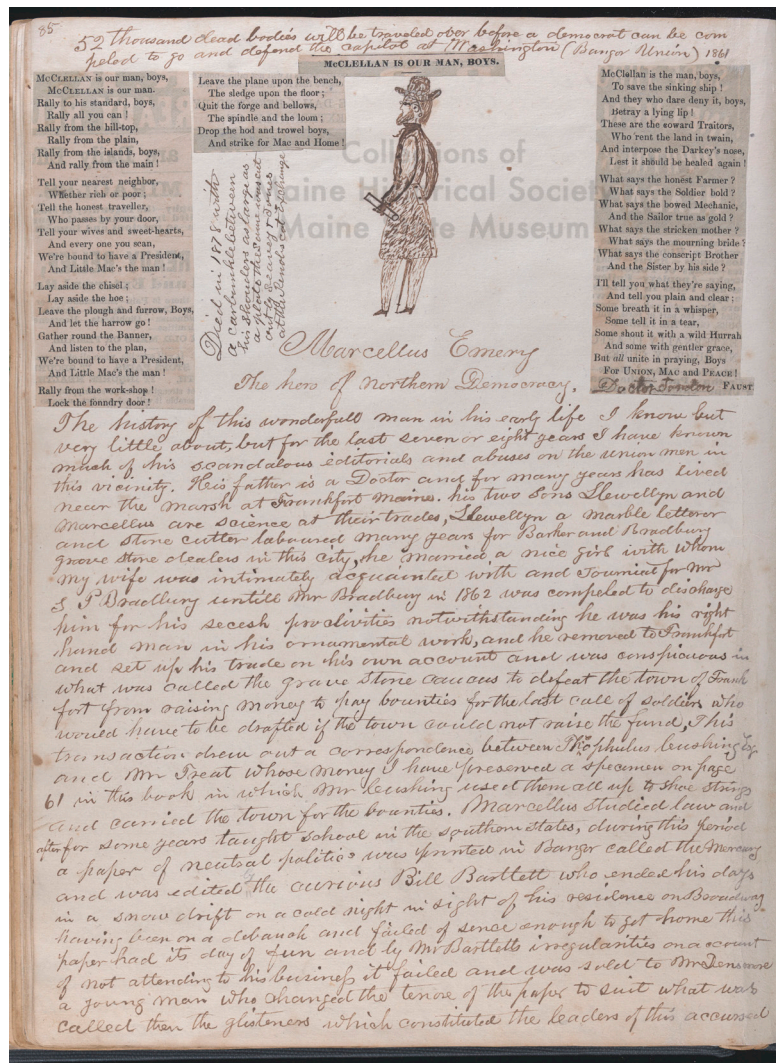 85
52 thousand dead bodies will be traveled over before a democrat can be com
peled to go and defend the capitol at Washington (Bangor Union) 1861
McCLELLAN IS OUR MAN, BOYS.
McCLELLAN is our man, boys,
McCLELLAN is our man.
Rally to his standard, boys,
Rally all you can !
Rally from the hill-top,
Rally from the plain,
Rally from the islands, boys,
And rally from the main !
Tell your nearest neighbor,
Whether rich or poor ;
Tell the honest traveller,
Who passes by your door,
Tell your wives and sweet-hearts,
And every one you scan,
We're bound to have a President,
And Little Mac's the man !
Lay aside the chisel ;
Lay aside the hoe ;
Leave the plough and furrow, Boys,
And let the harrow go !
Gather round the Banner,
And listen to the plan,
We're bound to have a President,
And Little Mac's the man !
Rally from the work-shop !
Lock the fonndry door !
Leave the plane upon the bench,
The sledge upon the floor ;
Quit the forge and bellows,
The spindle and the loom ;
Drop the hod and trowel boys,
And strike for Mac and Home !
McClellan is the man, boys,
To save the sinking ship !
And they who dare deny it, boys,
Betray a lying lip !
These are the coward Traitors,
Who rent the land in twain,
And interpose the Darkey's nose,
Lest it should be healed again !
What says the honest Farmer ?
What says the Soldier bold ?
What says the bowed Mechanic,
And the Sailor true as gold ?
What says the stricken mother ?
What says the mourning bride ?
What says the conscript Brother
And the Sister by his side ?
I'll tell you what they're saying,
And tell you plain and clear ;
Some breath it in a whisper,
Some tell it in a tear,
Some shout it with a wild Hurrah
And some with gentler grace,
But all unite in praying, Boys
For UNION, MAC and PEACE !
Doctor FAUST
Collections of
Maine Historical Society
Maine State Museum
Died in 1878 with
a carbuncle between
his shoulders as large as
a plate the same was cut
out
at the Penobscot Exchange
Marcellus Emery
The hero of Northern Democracy.
The history of this wonderfull man in his early life I know but
very little about, but for the last seven or eight years I have known
much of his scandalous editorials and abuses on the union men in
this vicinity. His father is a Doctor and for many years has lived
near the marsh at Frankfort Maine. his two sons Llewellyn and
Marcellus are science at their trades, Llewellyn a marble letterer
and stone cutter laboured many years for Barker and Bradbury
grove stone dealers in this city, he married a nice girl with whom
my wife was intimately acquainted with and Journied for Mr
S P Bradbury untill Mr Bradbury in 1862 was compeled to discharge
him for his secesh proclivities notwithstanding he was his right
hand man in his ornamental work, and he removed to Frankfort
and set up his trade on his own account and was conspicuous in
what was called the grave stone caucus to defeat the town of Frank
fort from raising money to pay bounties for the last call of soldiers who
would have to be drafted if the town could not raise the fund, This
transaction drew out a correspondence between Theophulus Cushing Esq
and Mr Treat whose money I have preserved a specimen on page
61 in this book in which Mr Cushing used them all up to shoe strings
and carried the town for the bounties. Marcellus studied law and
after for some years taught school in the southern states, during this period
a paper of neutral politics was printed in Bangor called the Mercury
and was edited the curious Bill Bartlett who ended his days
in a snow drift on a cold night in sight of his residence on Broadway
having been on a debauch and failed of sence enough to get home this
paper had its day of fun and by Mr Bartletts irregularities on account
of not attending to his business it failed and was sold to Mr Densmore
a young man who changed the tenor of the paper to suit what was
called then the glisteners which constituted the leaders of this accursed